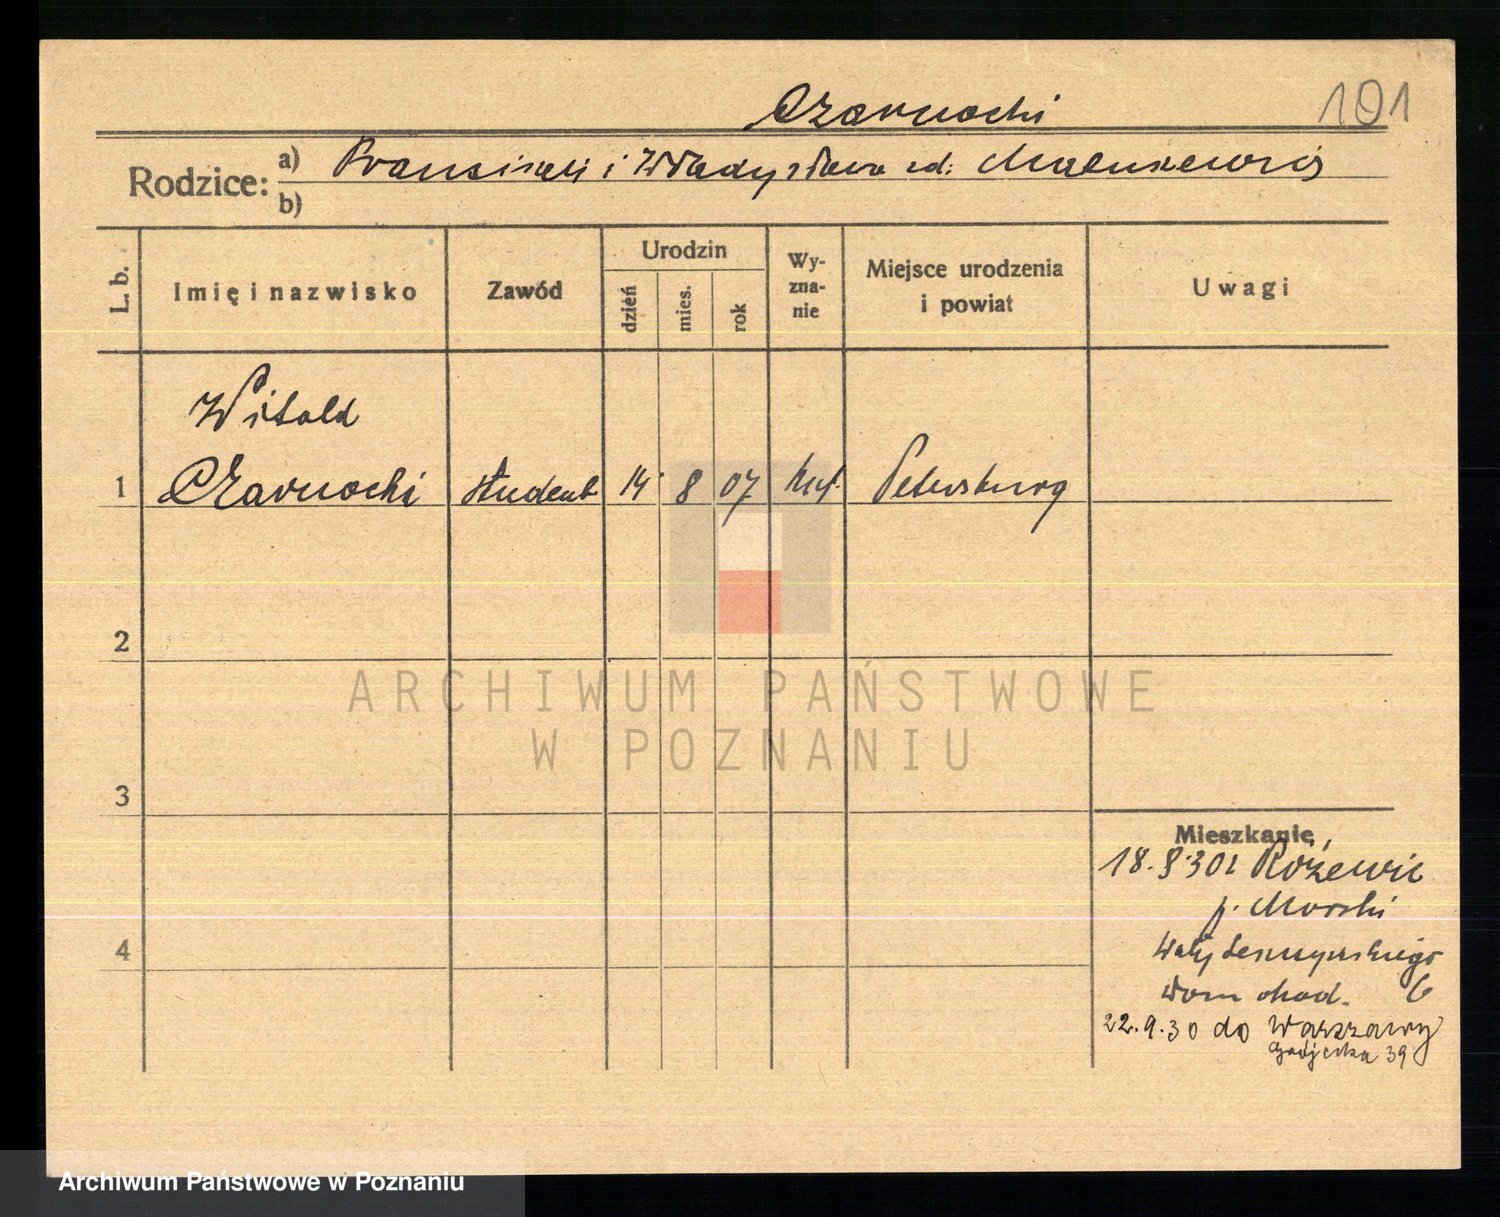 Czarnocki
101
Rodzice: a) Franciszek i Władysława zd: Matusiewicz
b)
L. b.
Imię i nazwisko
Zawód
Urodzin
dzień
mies.
rok
Wy-
zna-
nie
Miejsce urodzenia
i powiat
Uwagi
Witold
1 Czarnocki student 14 8 07 Petersburg
2
3
4
Mieszkanie
18.8.30 Różewic
p. Morski
Wały Leszczyńskiego
dom akad. 6
22.9.30 do Warszawy
39
ARCHIWUM PAŃSTWOWE
W POZNANIU
Archiwum Państwowe w Poznaniu